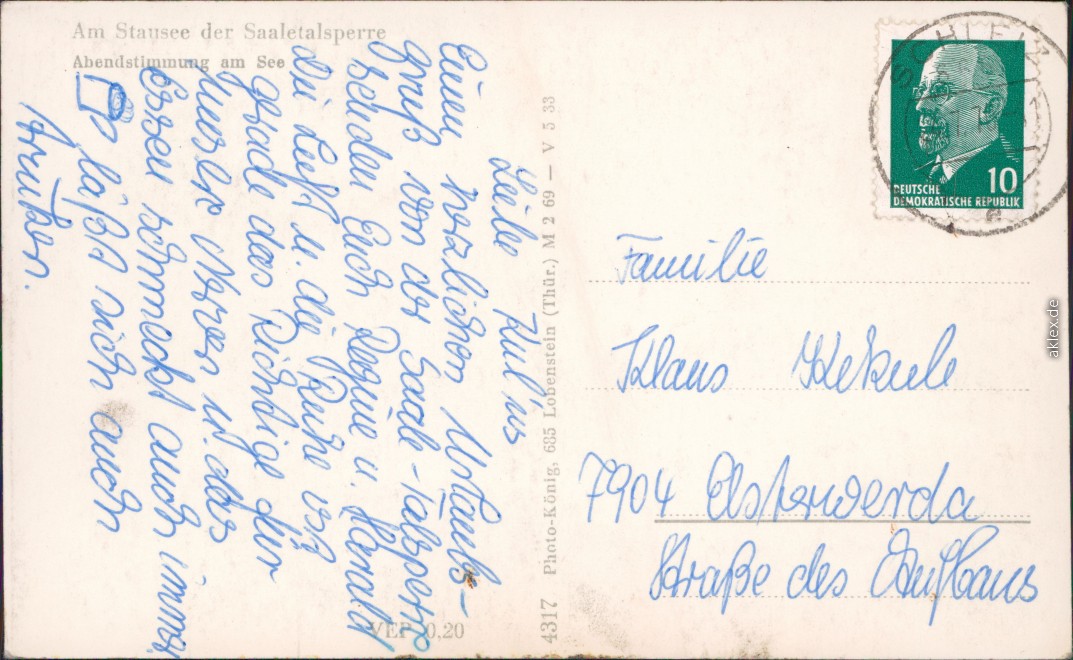 Am Stausee der Saaletalsperre
Abendstimmung am See
Liebe Kul'us
Einen herzlichen Urlaubs-
gruß von der Saale-Talsperre
senden Euch Regine u. Harald
Die Luft u. die Ruhe ist
gerade das Richtige für
unsere Nerven u. das
Essen schmeckt auch immer
Es läßt sich auch
VEP 0,20
4317 Photo-König, 685 Lobenstein (Thür.) M 2 69 — V 5 33
SCHLEIZ
DEUTSCHE
DEMOKRATISCHE REPUBLIK
10
Familie
Klaus Kekule
7904 Elsterwerda
Straße des Aufbaus
aklex.de